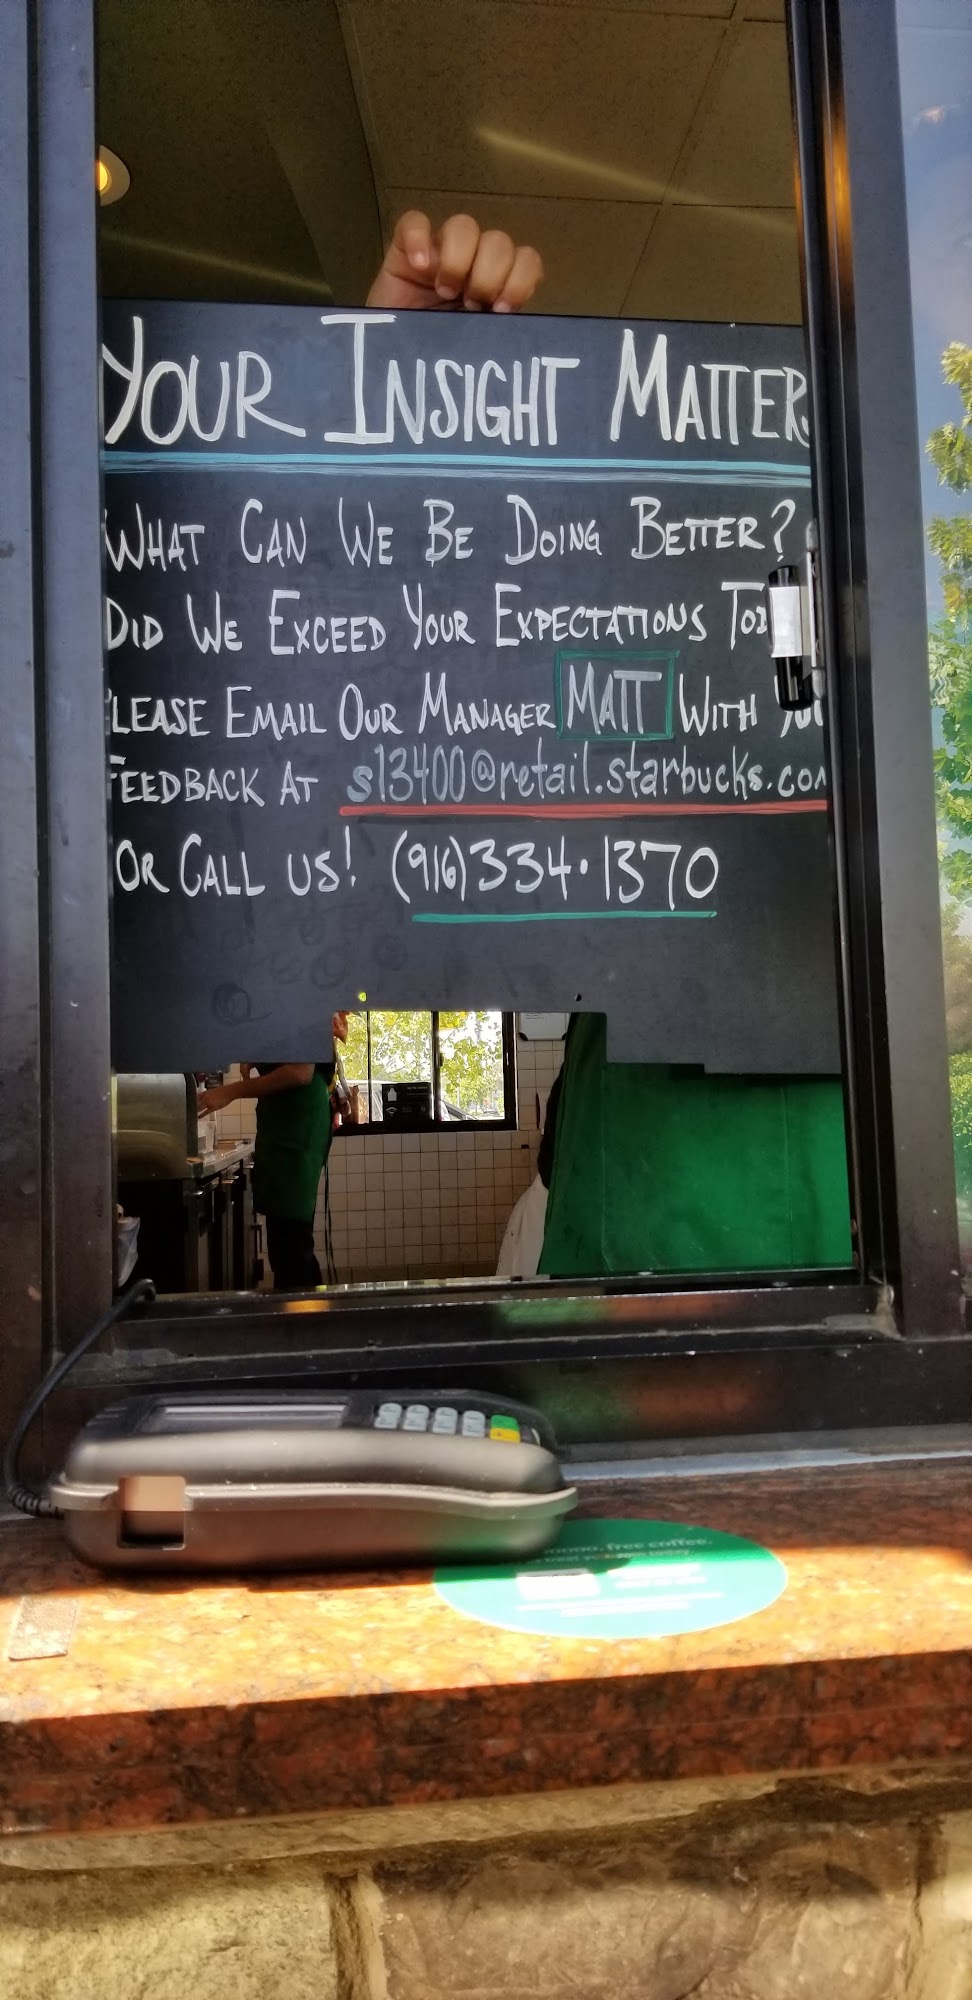 YOUR INSIGHT MATTERS
WHAT CAN WE BE DOING BETTER?
DID WE EXCEED YOUR EXPECTATIONS TOD
LEASE EMAIL OUR MANAGER MATT WITH YOU
FEEDBACK AT s13400@retail.starbucks.com
OR CALL US! (916)334·1370
free coffee.